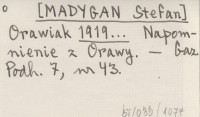 [MADYGAN Stefan]
Orawiak 1919... Napom-
nienie z Orawy. — Gaz.
Podh. 7, nr 43.